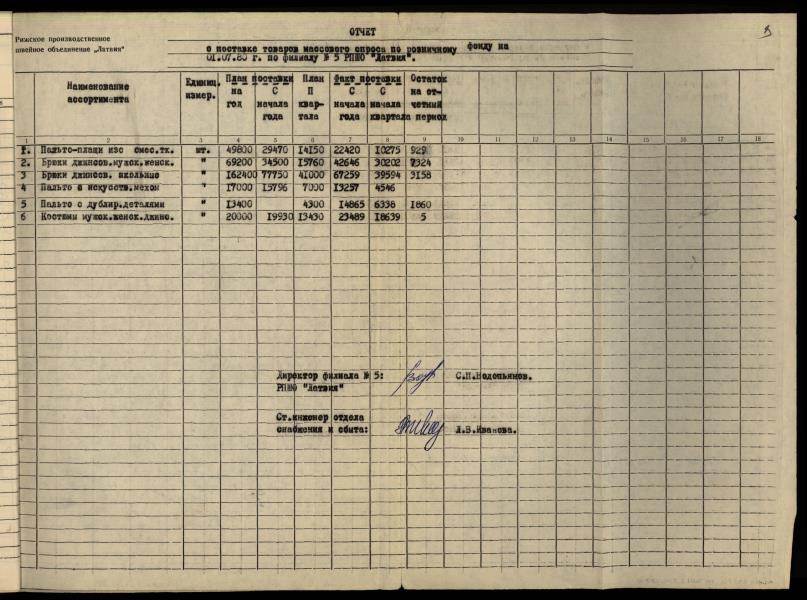 ОТЧЕТ
Рижское производственное
швейное объединение „Латвия"
о поставке товаров массового спроса по розничному фонду на
01.07.80 г. по филиалу № 5 РПШО "Латвия".
Наименование ассортимента Единиц. измер. План поставки План Факт поставки Остаток
на год С начала года П квартала С начала года С начала квартала на отчетный период
1 2 3 4 5 6 7 8 9 10 11 12 13 14 15 16 17 18
1. Пальто-плащи изо смес.тк. шт. 49800 29470 14150 22420 10275 929
2. Брюки джинсов.мужск.женск. " 69200 34500 15760 42646 30202 7324
3 Брюки джинсов. школьные " 162400 77750 41000 67259 39594 3158
4 Пальто с искусств.мехом " 17000 15796 7000 13257 4546
5 Пальто с дублир.деталями " 13400 4300 14865 6338 1860
6 Костюмы мужск.женск.джинс. " 20000 19930 13430 23489 18639 5
Директор филиала № 5: С.П.Водопьянов.
РПШО "Латвия"
Ст.инженер отдела
снабжения и сбыта: Л.В.Иванова.